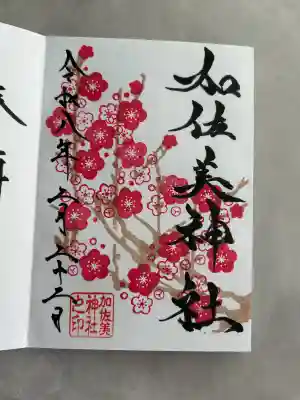 加佐美神社
令和八年二月二十二日
加佐美
神社
之印